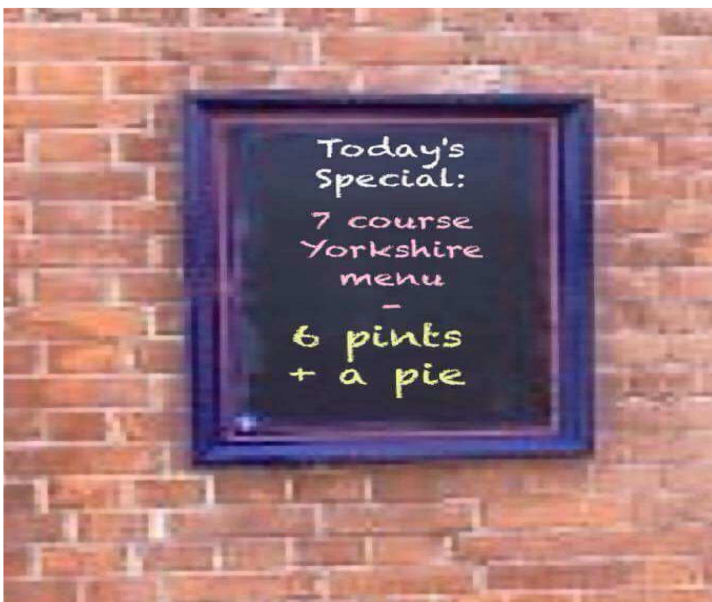 Today's
Special:
7 course
Yorkshire
menu
-
6 pints
+ a pie